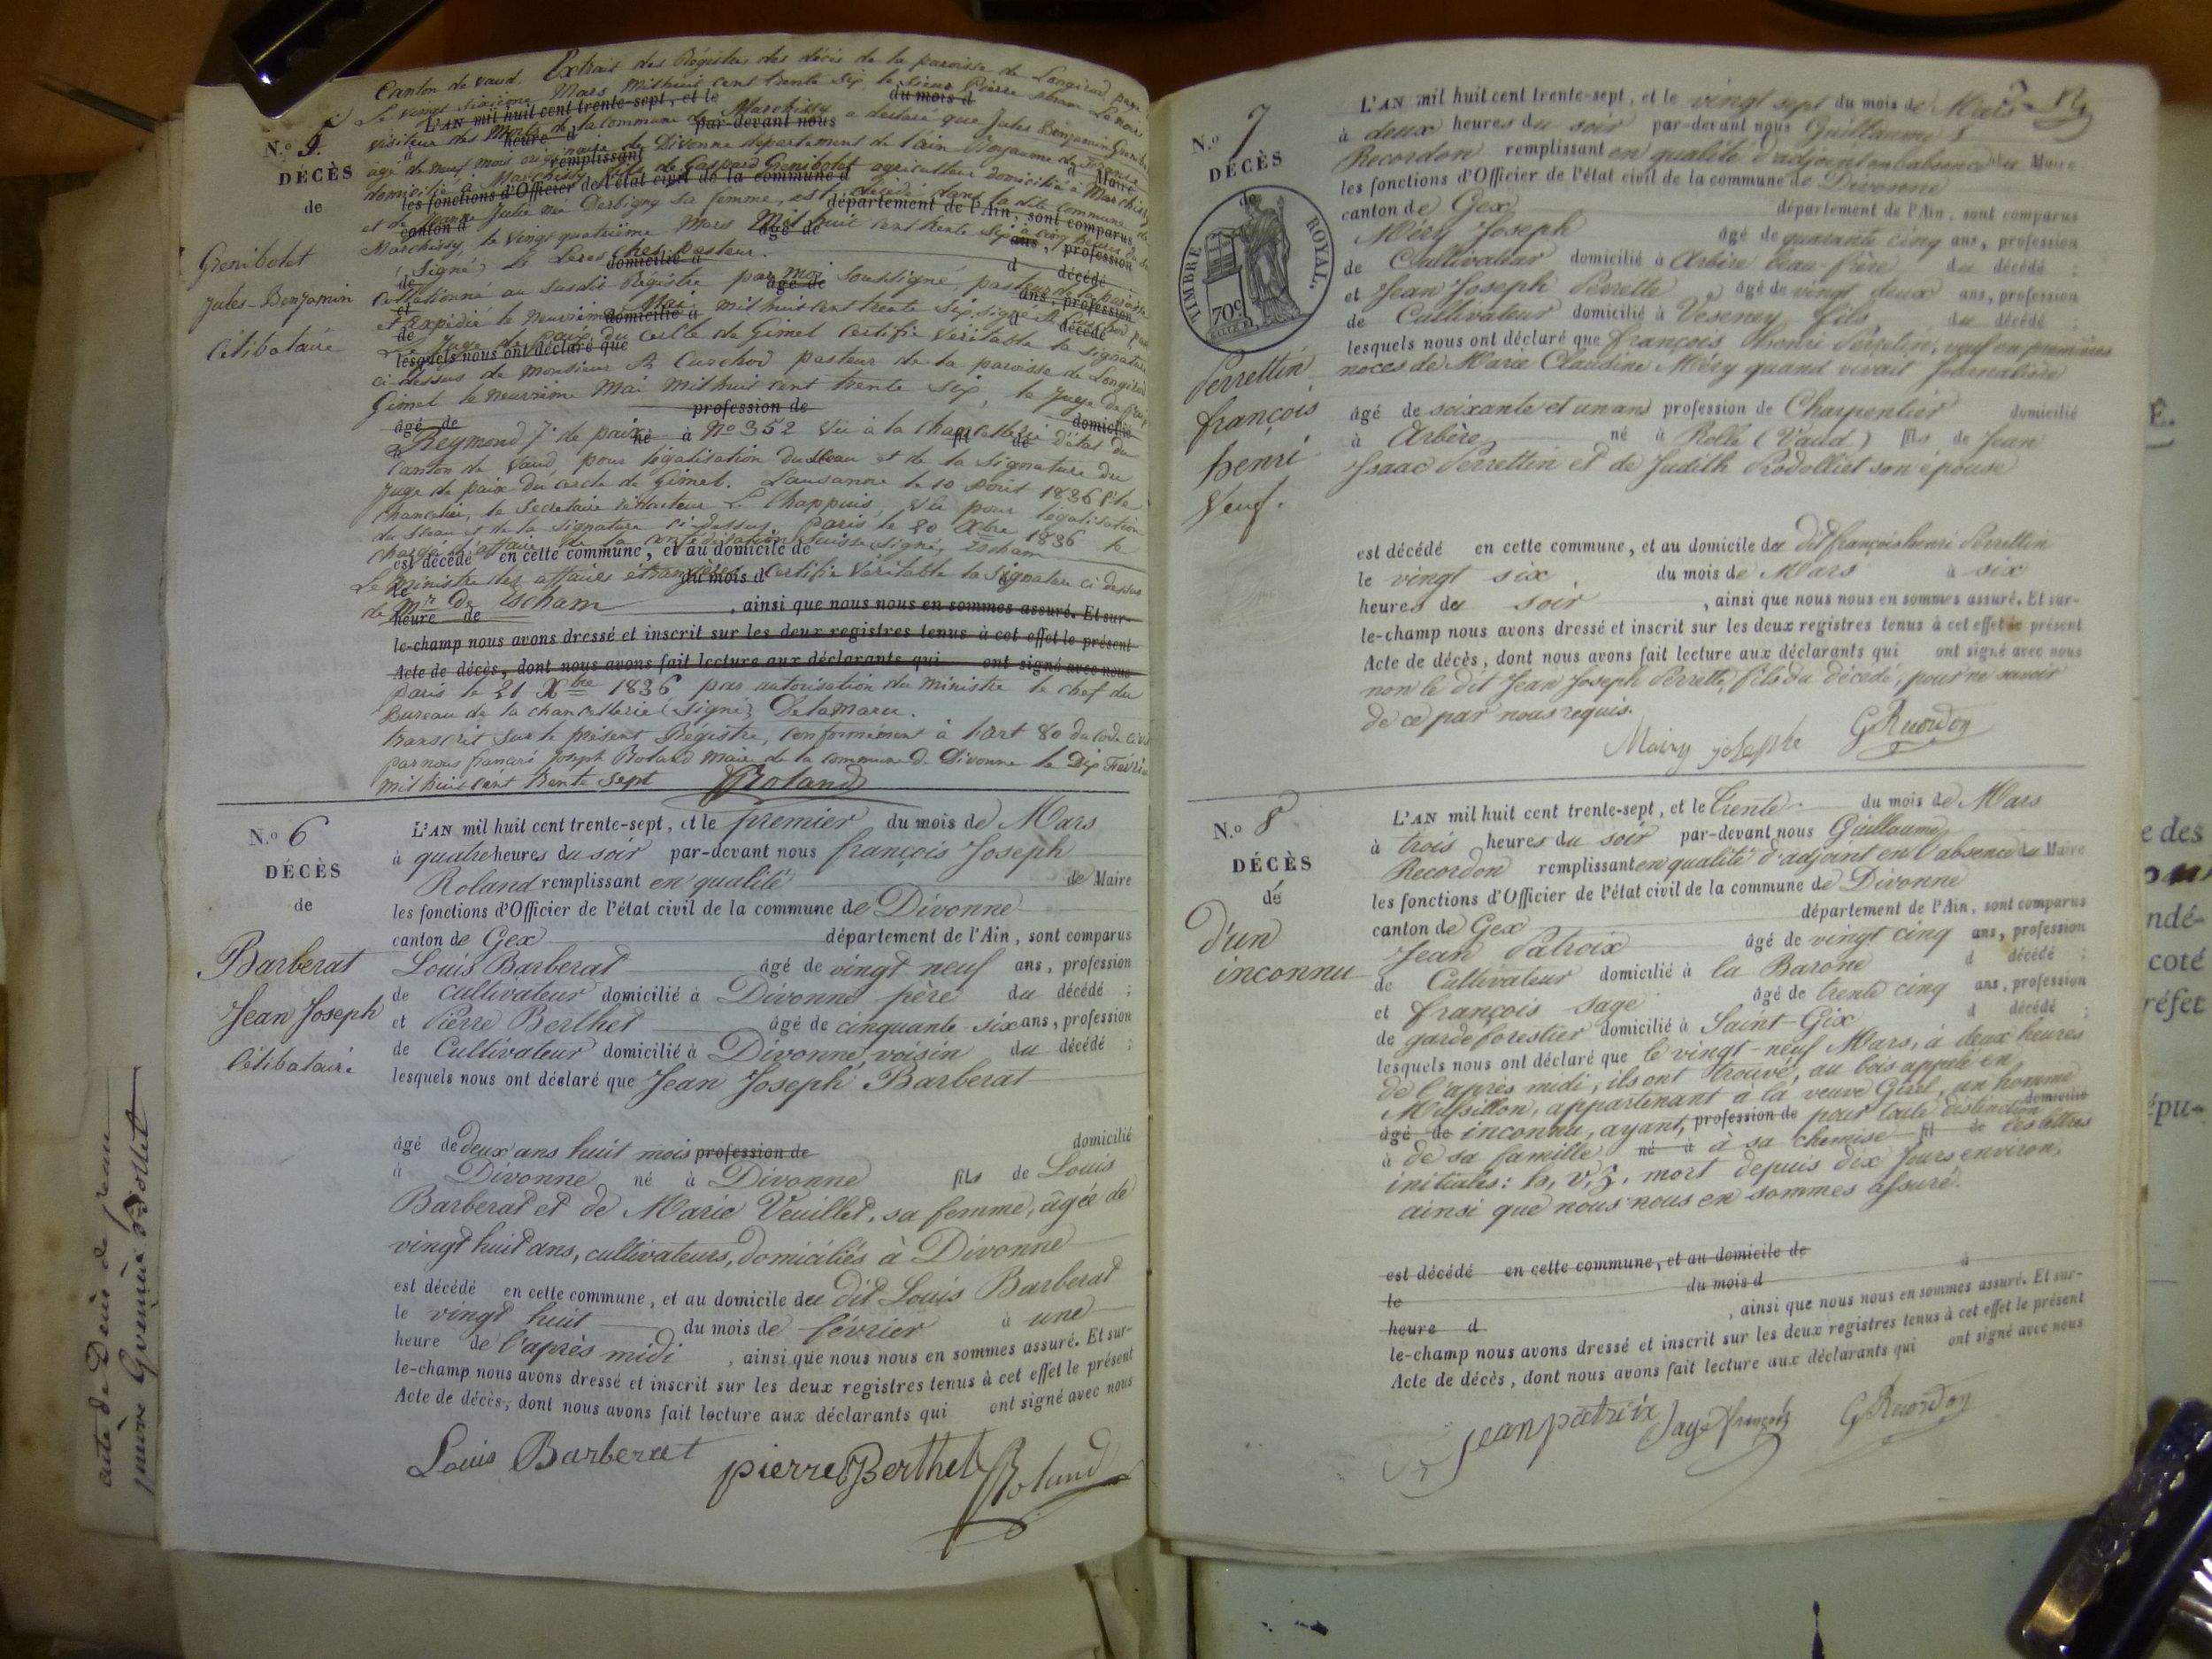 Canton de Vaud. Extrait des Régistres des décès de la paroisse de Longirod,
Le vingt sixième Mars Mil huit cent trente six, le sieur Pierre
L'AN mil huit cent trente-sept, et le du mois d
visiteur des Morts de la commune de Marchissy a déclaré que Jules Benjamin
à heure d par-devant nous
âgé de neuf mois originaire de Divonne département de l'ain Royaume de France
remplissant d Maire
domicilié à Marchissy fils de Gaspard Grenibolet agriculteur domicilié à Marchissy
les fonctions d'Officier de l'état civil de la commune d
et de Jeanne Julie née Derbigny sa femme, est décédé dans la dite commune de
canton d département de l'Ain, sont comparus
Marchissy, le vingt quatrième Mars Mil huit cent trente six à cinq heures
âgé de ans, profession
(Signé) pasteur.
de domicilié à d décédé
Collationné au susdit Régistre par moi soussigné, pasteur de la paroisse
et âgé de ans, profession
et Expédié le neuvième Mai mil huit cent trente six, signé
de domicilié à d décédé
Le Juge de paix du cercle de Gimel certifie véritable la signature
lesquels nous ont déclaré que
ci dessus de Monsieur A Curchod pasteur de la paroisse de Longirod
Gimel le neuvième Mai mil huit cent trente six, le Juge de paix
âgé de profession de domicilié
Reymond J. de paix. No 352 Vu à la chancellerie d'état du
à né à fil de
Canton de Vaud, pour légalisation du sceau et de la signature du
Juge de paix du cercle de Gimel. Lausanne le 10 Août 1836 p. le
Chancelier, le secrétaire rédacteur L. Chappuis, Vu pour légalisation
du sceau et de la signature ci-dessus. Paris le 20 Xbre 1836 le
chargé d'affaire de la confédération Suisse signé,
est décédé en cette commune, et au domicile de
Le Ministre des affaires étrangères certifie véritable la signature ci dessus
le du mois d à
de Mr de
heure de , ainsi que nous nous en sommes assuré. Et sur-
le-champ nous avons dressé et inscrit sur les deux registres tenus à cet effet le présent
Acte de décès, dont nous avons fait lecture aux déclarants qui ont signé avec nous
Paris le 21 Xbre 1836, par autorisation du Ministre le chef du
Bureau de la chancellerie (signé) Delamarre.
transcrit sur le présent Régistre, conformément à l'art 80 du code civil
par nous françois Joseph Roland Maire de la commune de Divonne le Dix Février
mil huit cent trente sept Roland
N.º 5
DÉCÈS
de
Grenibolet
Jules-Benjamin
Célibataire
N.º 6
DÉCÈS
de
Barberat
Jean Joseph
Célibataire
L'AN mil huit cent trente-sept, et le premier du mois de Mars
à quatre heures du soir par-devant nous françois Joseph
Roland remplissant en qualité de Maire
les fonctions d'Officier de l'état civil de la commune de Divonne
canton de Gex département de l'Ain, sont comparus
Louis Barberat âgé de vingt neuf ans, profession
de cultivateur domicilié à Divonne père du décédé ;
et Pierre Berthet âgé de cinquante-six ans, profession
de Cultivateur domicilié à Divonne, voisin du décédé ;
lesquels nous ont déclaré que Jean Joseph Barberat
âgé de deux ans huit mois profession de domicilié
à Divonne né à Divonne fils de Louis
Barberat et de Marie Veuillet, sa femme, âgée de
vingt huit ans, cultivateurs, domiciliés à Divonne
est décédé en cette commune, et au domicile du dit Louis Barberat
le vingt huit du mois de février à une
heure de l'après midi , ainsi que nous nous en sommes assuré. Et sur-
le-champ nous avons dressé et inscrit sur les deux registres tenus à cet effet le présent
Acte de décès, dont nous avons fait lecture aux déclarants qui ont signé avec nous
Louis Barberat pierre Berthet Roland
N.º 7
DÉCÈS
de
TIMBRE ROYAL.
70c
Perrettin
françois
henri
Veuf.
L'AN mil huit cent trente-sept, et le vingt sept du mois de Mars
à deux heures du soir par-devant nous Guillaume
Recordon remplissant en qualité d'adjoint en l'absence du Maire
les fonctions d'Officier de l'état civil de la commune de Divonne
canton de Gex département de l'Ain, sont comparus
Méry Joseph âgé de quarante cinq ans, profession
de Cultivateur domicilié à Arbère beau-frère du décédé ;
et Jean Joseph Perrette, âgé de vingt deux ans, profession
de Cultivateur domicilié à Vesenex fils du décédé ;
lesquels nous ont déclaré que françois henri Perrettin, veuf en premières
noces de Marie Claudine Méry quand vivait Journalière
âgé de soixante et un ans profession de Charpentier domicilié
à Arbère né à Rolle (Vaud) fils de Jean
Isaac Perrettin et de Judith Rodolliet son épouse
est décédé en cette commune, et au domicile du dit françois henri Perrettin
le vingt six du mois de Mars à six
heures du soir , ainsi que nous nous en sommes assuré. Et sur-
le-champ nous avons dressé et inscrit sur les deux registres tenus à cet effet le présent
Acte de décès, dont nous avons fait lecture aux déclarants qui ont signé avec nous
non le dit Jean Joseph Perrette, fils du décédé, pour ne savoir
de ce par nous requis.
Mairy joseph GRecordon
N.º 8
DÉCÈS
de
D'un
inconnu
L'AN mil huit cent trente-sept, et le trente du mois de Mars
à trois heures du soir par-devant nous Guillaume
Recordon remplissant en qualité d'adjoint en l'absence du Maire
les fonctions d'Officier de l'état civil de la commune de Divonne
canton de Gex département de l'Ain, sont comparus
Jean Patroix âgé de vingt cinq ans, profession
de Cultivateur domicilié à la Barone d décédé ;
et françois sage âgé de trente cinq ans, profession
de garde forestier domicilié à Saint-Gix d décédé ;
lesquels nous ont déclaré que le vingt-neuf Mars, à deux heures
de l'après midi, ils ont trouvé, au bois appelé en
Mussillon, appartenant à la veuve Girel, un homme
âgé de inconnu, ayant, profession de pour toute distinction domicilié
à de sa famille né à à sa chemise fil de les lettres
initiales: h, v, z, mort depuis dix jours environ,
ainsi que nous nous en sommes assuré.
est décédé en cette commune, et au domicile de
le du mois d à
heure d , ainsi que nous nous en sommes assuré. Et sur-
le-champ nous avons dressé et inscrit sur les deux registres tenus à cet effet le présent
Acte de décès, dont nous avons fait lecture aux déclarants qui ont signé avec nous
jean patrix Sage françois GRecordon
E.
e des
ndé-
coté
réfet
épu-